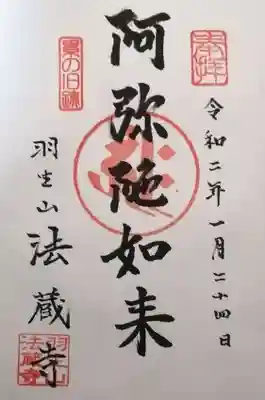 奉拝
令和二年一月二十四日
阿弥陀如来
県の旧跡
羽生山
法蔵寺
羽生山
法蔵寺